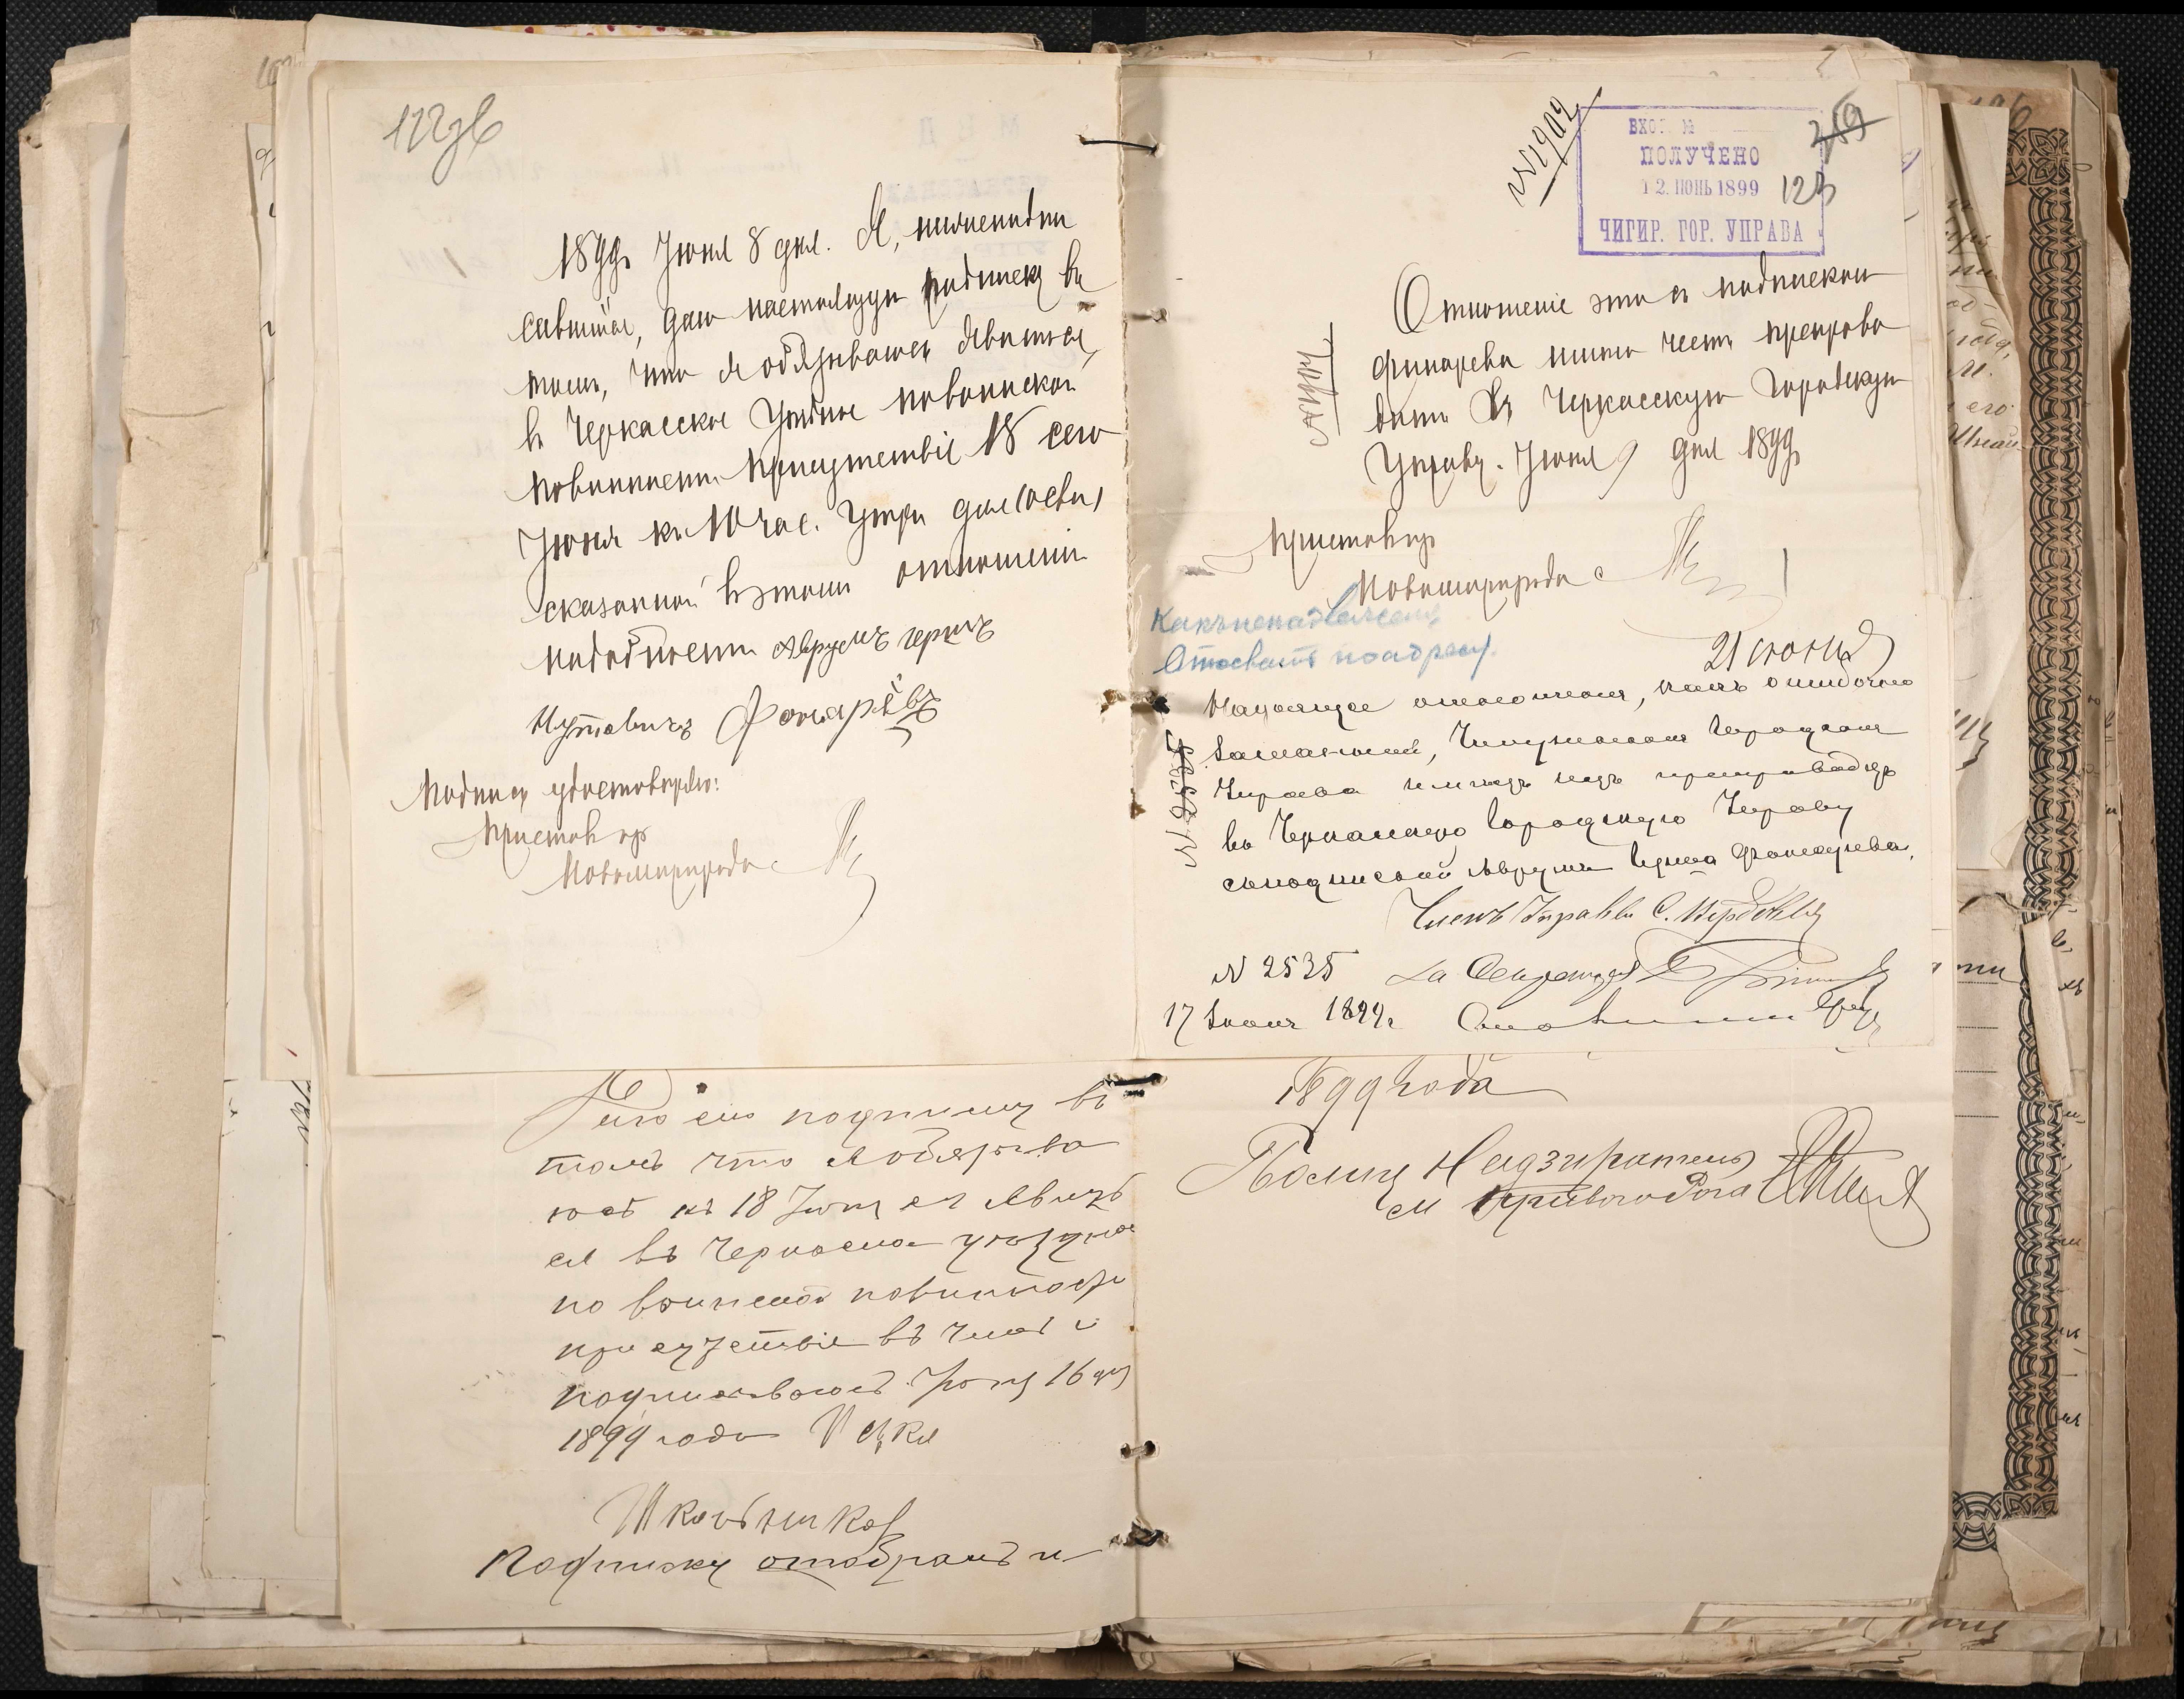 122 об
1899 г. Июня 8 дня. Я, нижеподпи
савшійся, даю настоящую подписку въ
томъ, что я обязываюсь явиться
въ Черкасское Уѣздное по воинской
повинности Присутствіе 18 сего
Июня къ 10 час. утра для
сказанной въ этомъ отношеніи
надобности Аврумъ Гершъ
Нутовичъ Фонарёвъ
Подпись удостовѣряю:
Приставъ гор
Новомиргорода
№1902
ВХОД. №
ПОЛУЧЕНО
12. ИЮНЬ 1899
ЧИГИР. ГОР. УПРАВА
259
123
Отношеніе это съ подпискою
Фонарева имѣю честь препрово
дить въ Черкасскую Городскую
Управу. Июня 9 дня 1899 г
Приставъ гор
Новомиргорода
Какъ ненадлежащее
Отослать по адресу.
21 июня
Настоящее отношеніе, какъ ошибочно
засланное, Чигиринская Городская
Управа имѣетъ честь препроводить
въ Черкасскую Городскую Управу
съ подпиской Аврума Герша Фонарева.
Членъ Управы С.
N 2535 За Секретаря
17 Іюня 1899 г.
Даю сію подписку въ
томъ что я обязыва
юсь къ 18 Июня с г явить
ся въ Черкаское уѣздное
по воинской повинности
присутствіе въ чемъ и
подписываюсь Июня 16 дня
1899 года Ицко
Школьников
Подписку отобралъ и
1899 года
Полиц Надзиратель
м Кривого Рога